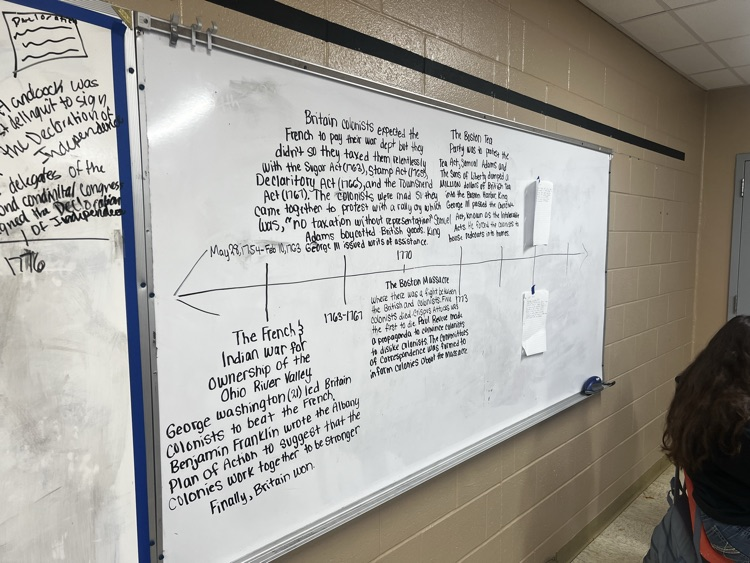 Declaration
Handcock was
delinquit to sign
the Declaration of
Independence
delegates of the
ond contnintal Congress
gned the Declaration
OF Independence
1776
Britain colonists expected the
French to pay their war dept but they
didn't so they taxed them relentlessly
with the Sugar Act (1763), Stamp Act (1765),
Declaritory Act (1766), and the Townshend
Act (1767). The colonists were mad so they
came together to protest with a rally cry which
was, "no taxation without representation" Samuel
Adams boycotted British goods. King
George III issued writs of assistance.
May 28, 1754-Feb 10, 1763
The Boston Tea
Party was to protest the
Tea Act, Samuel Adams and
The Sons of Liberty dumped
million dollars of British Tea
into the Boston Harbor. King
George III passed the
Acts, known as the Intolerable
Acts. He forced the colonies to
house redcoats in homes.
1770
1763-1767
1773
The French &
Indian war for
ownership of the
Ohio River Valley.
George Washington (21) led Britain
colonists to beat the French.
Benjamin Franklin wrote the Albany
Plan of Action to suggest that the
colonies work together to be stronger
Finally, Britain won.
The Boston Massacre
where there was a fight between
the British and colonists. Five
colonists died Crispus Attucks was
the first to die Paul Revere made
a propaganda to convince colonists
to dislike colonists. The Committees
of Correspondence was formed to
inform colonies about the Massacre.